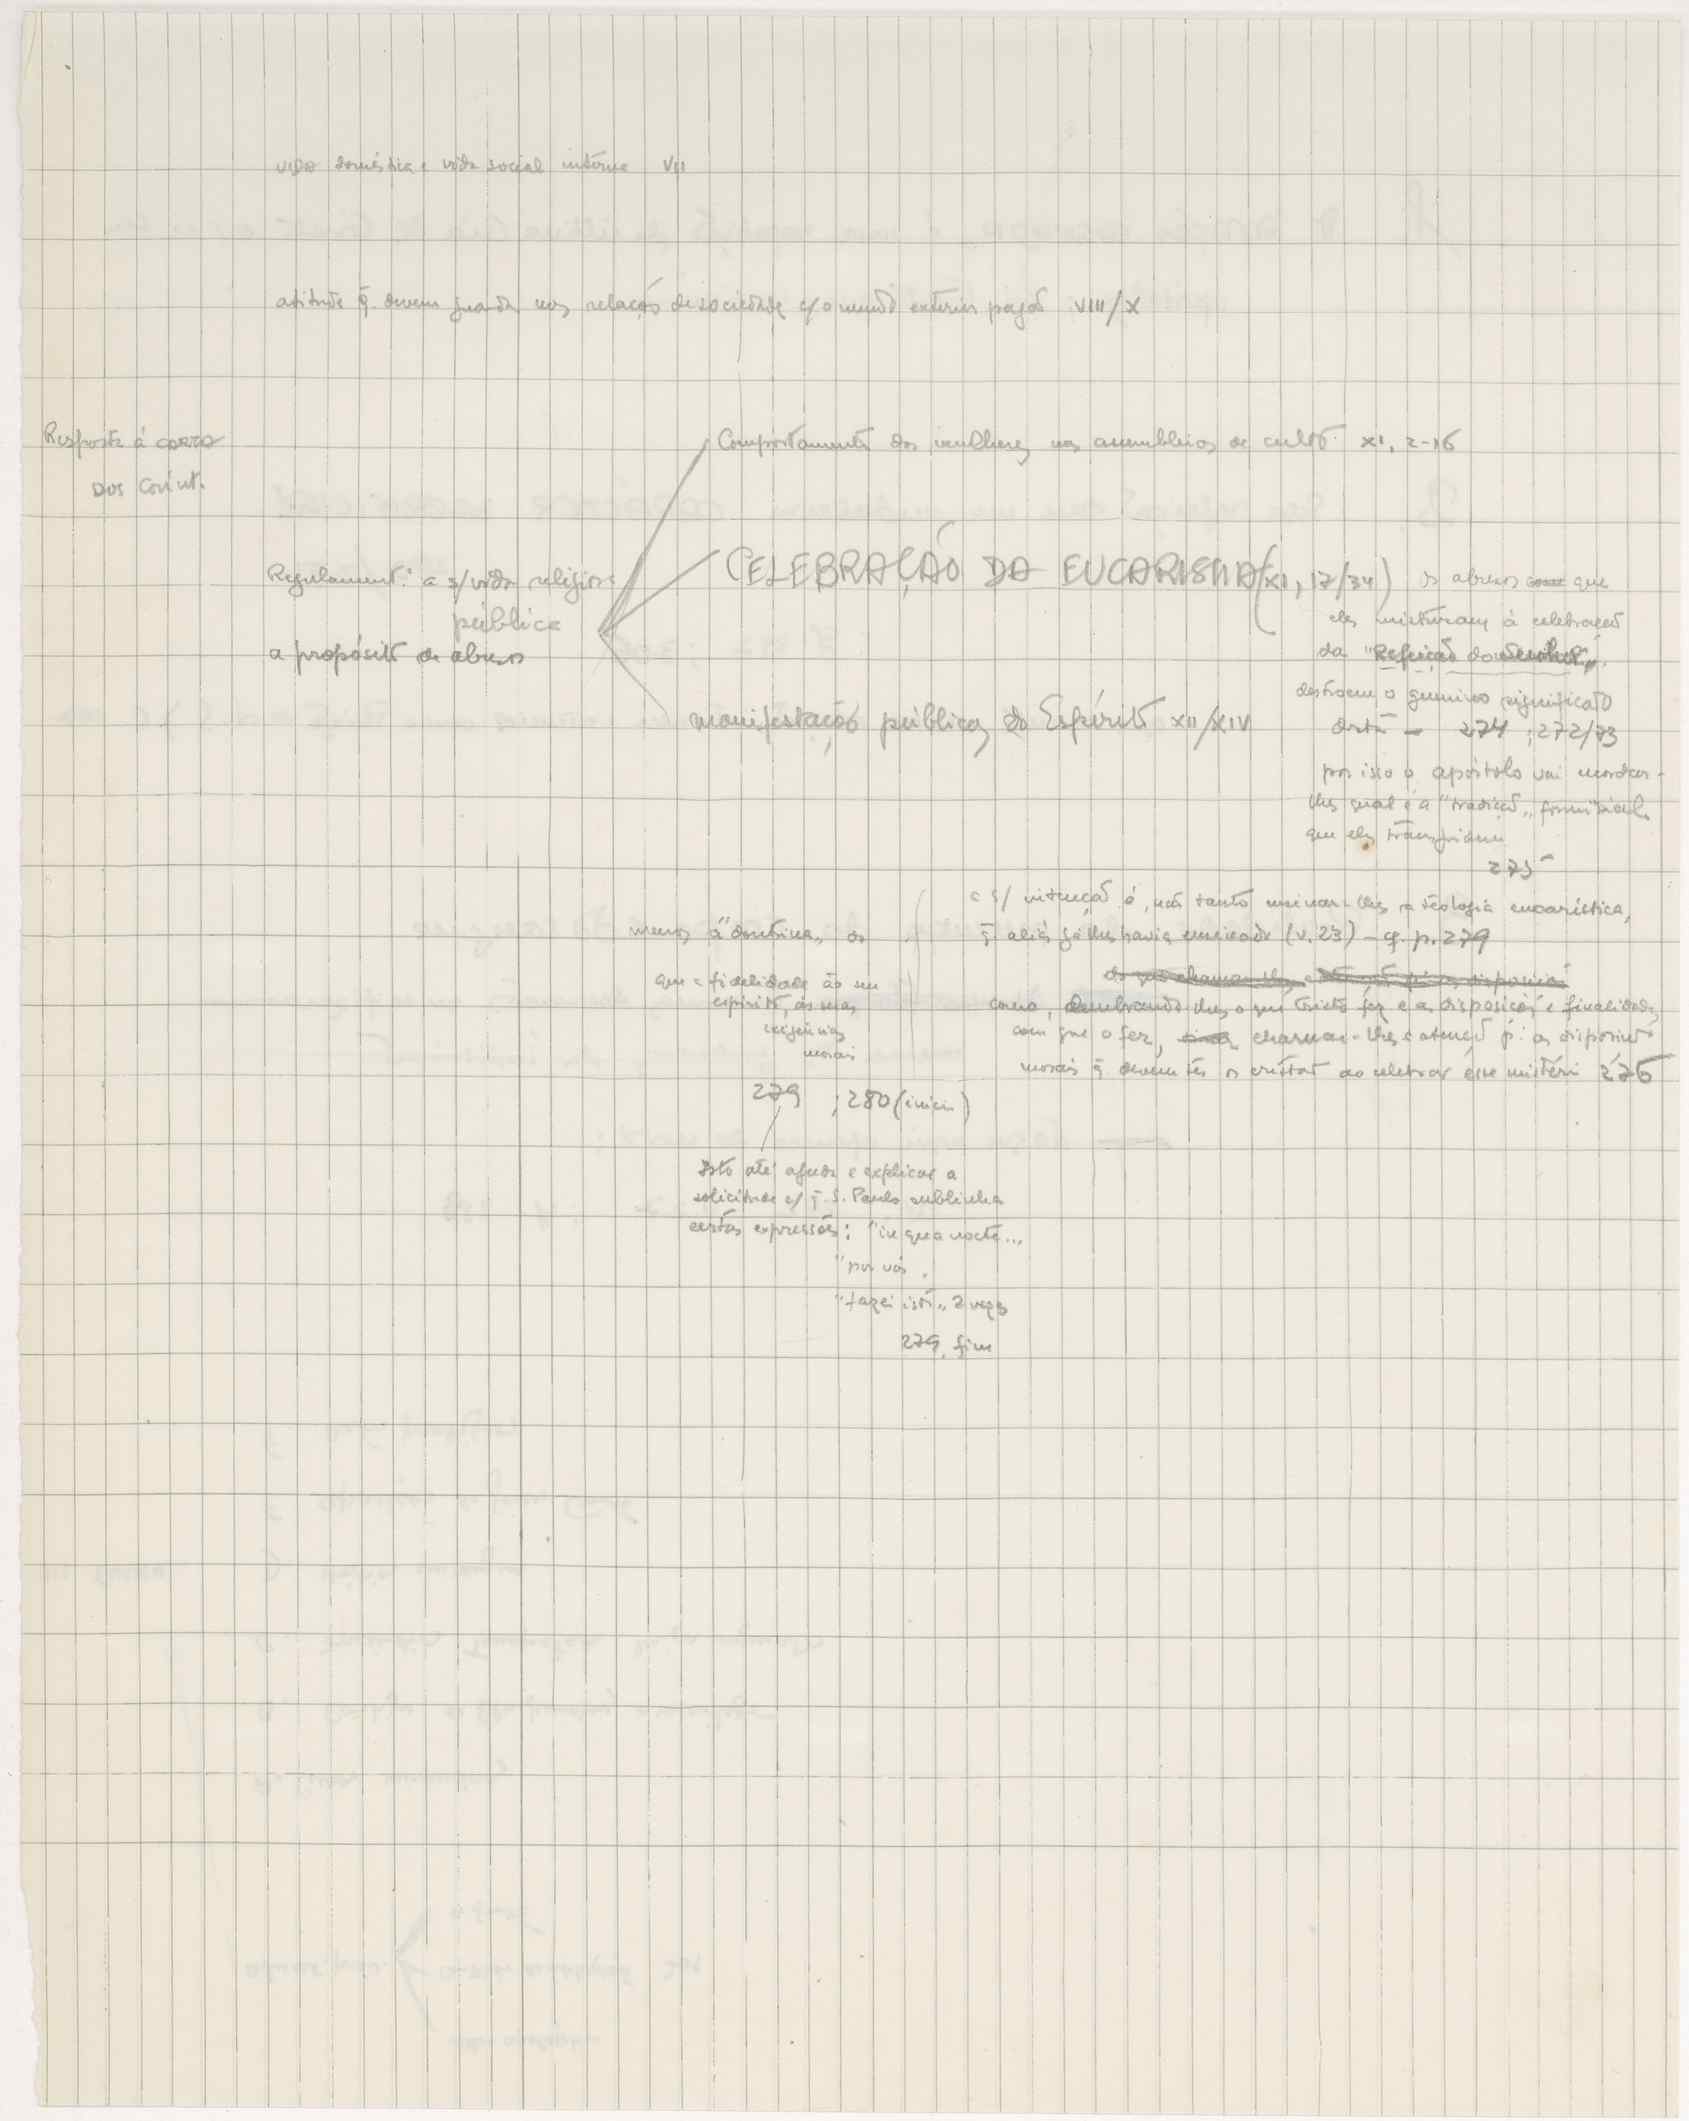 vida doméstica e vida social interna VII
atitude q̄ devem guardar nas relações de sociedade c/ o mundo exterior pagão VIII/X
Resposta à carta
dos Corínt.
Comportamento das mulheres nas assembleias de culto XI, 2-16
Regulament.º a s/ vida religiosa
pública
a propósito de abusos
CELEBRAÇÃO DA EUCARISTIA (XI, 17/34) os abusos que
eles misturam à celebração
da "Refeição do Senhor",
destroem o genuino significado
desta - 274 ; 272/73
manifestações públicas do Espírito XII/XIV
por isso o apóstolo vai recordar-
lhes qual é a "tradição"
que eles transgridem
275
a s/ intenção é, não tanto ensinar-lhes a teologia eucarística,
q̄ aliás já lhes havia ensinado (v. 23) - cf. p. 279
como, lembrando-lhes o que Cristo fez e as disposições e finalidades
com que o fez, chamar-lhes a atenção p.ª as disposições
morais q̄ devem ter os cristãos ao celebrar esse mistério 276
menos a "doutrina" do
que a fidelidade ao seu
espírito, às suas
exigências
morais
279 ; 280 (início)
Isto até ajuda a explicar a
solicitude c/ q̄ S. Paulo sublinha
certas expressões: "in qua nocte...
"por vós"
"fazei isto" 2 vezes
279, fim